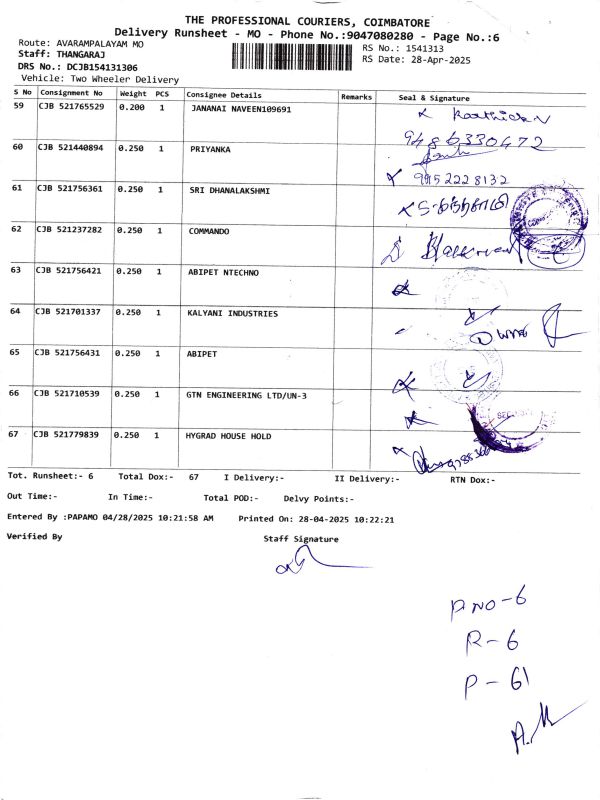 THE PROFESSIONAL COURIERS, COIMBATORE
Delivery Runsheet - MO - Phone No.:9047080280 - Page No.:6
Route: AVARAMPALAYAM MO
RS No.: 1541313
Staff: THANGARAJ
RS Date: 28-Apr-2025
DRS No.: DCJB154131306
Vehicle: Two Wheeler Delivery
S No Consignment No Weight PCS Consignee Details Remarks Seal & Signature
59 CJB 521765529 0.200 1 JANANAI NAVEEN109691 Karthick V
9486330472
60 CJB 521440894 0.250 1 PRIYANKA
9952228132
61 CJB 521756361 0.250 1 SRI DHANALAKSHMI
62 CJB 521237282 0.250 1 COMMANDO
63 CJB 521756421 0.250 1 ABIPET NTECHNO
64 CJB 521701337 0.250 1 KALYANI INDUSTRIES
65 CJB 521756431 0.250 1 ABIPET
66 CJB 521710539 0.250 1 GTN ENGINEERING LTD/UN-3
67 CJB 521779839 0.250 1 HYGRAD HOUSE HOLD
Tot. Runsheet:- 6 Total Dox:- 67 I Delivery:- II Delivery:- RTN Dox:-
Out Time:- In Time:- Total POD:- Delvy Points:-
Entered By :PAPAMO 04/28/2025 10:21:58 AM Printed On: 28-04-2025 10:22:21
Verified By Staff Signature
P.NO-6
R-6
P-61